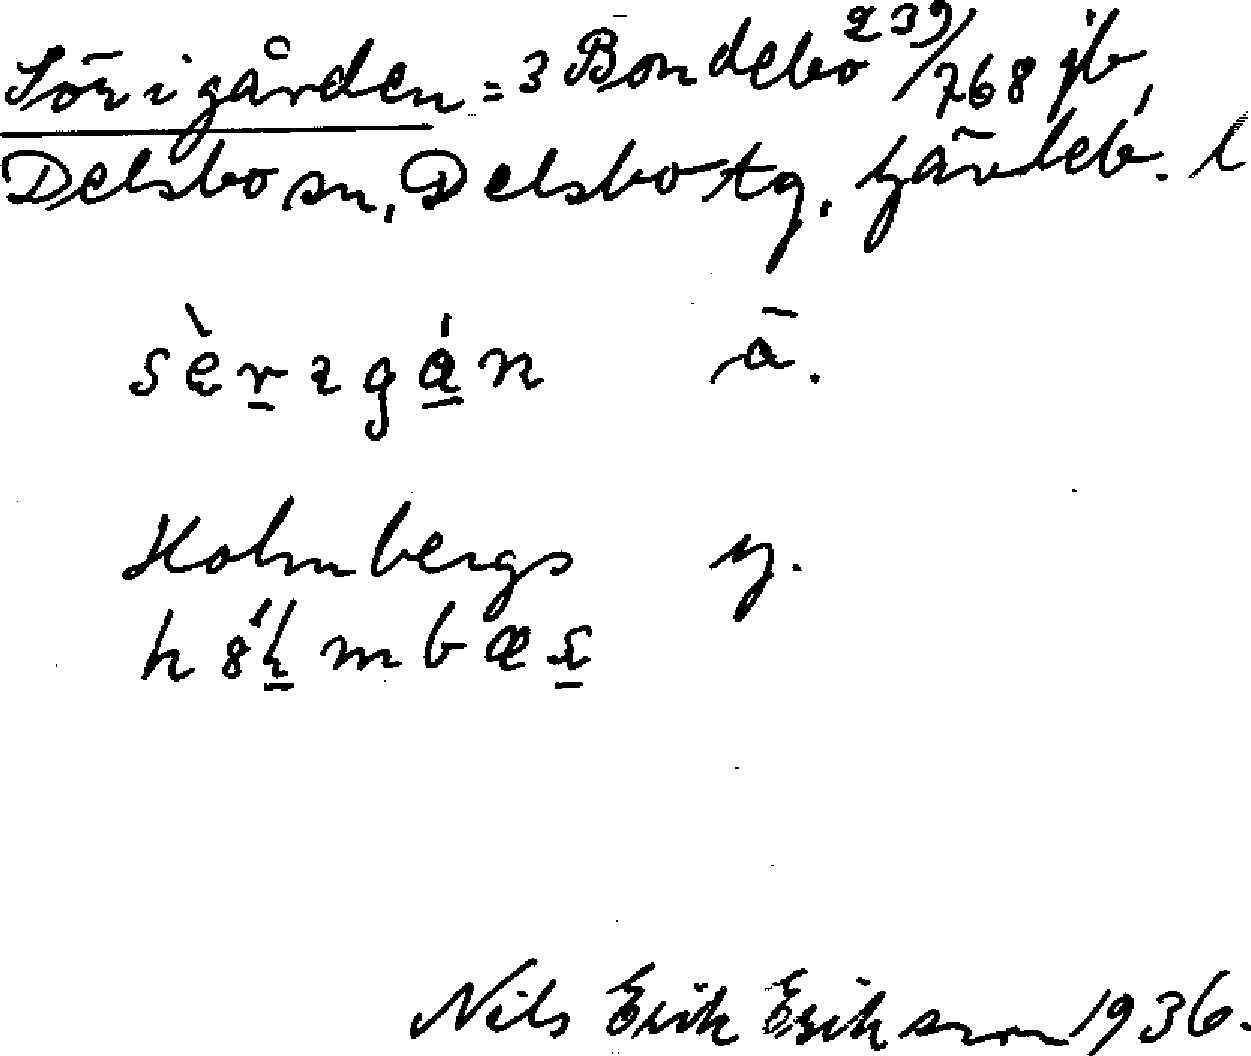 Sörigården = 3 Bondebo 239/768 jb,
Delsbo sn, Delsbo tg. Gävleb. l
sèrɪgán ä.
Holmbergs y.
h8́lmbæs
Nils Erik Erikson 1936.